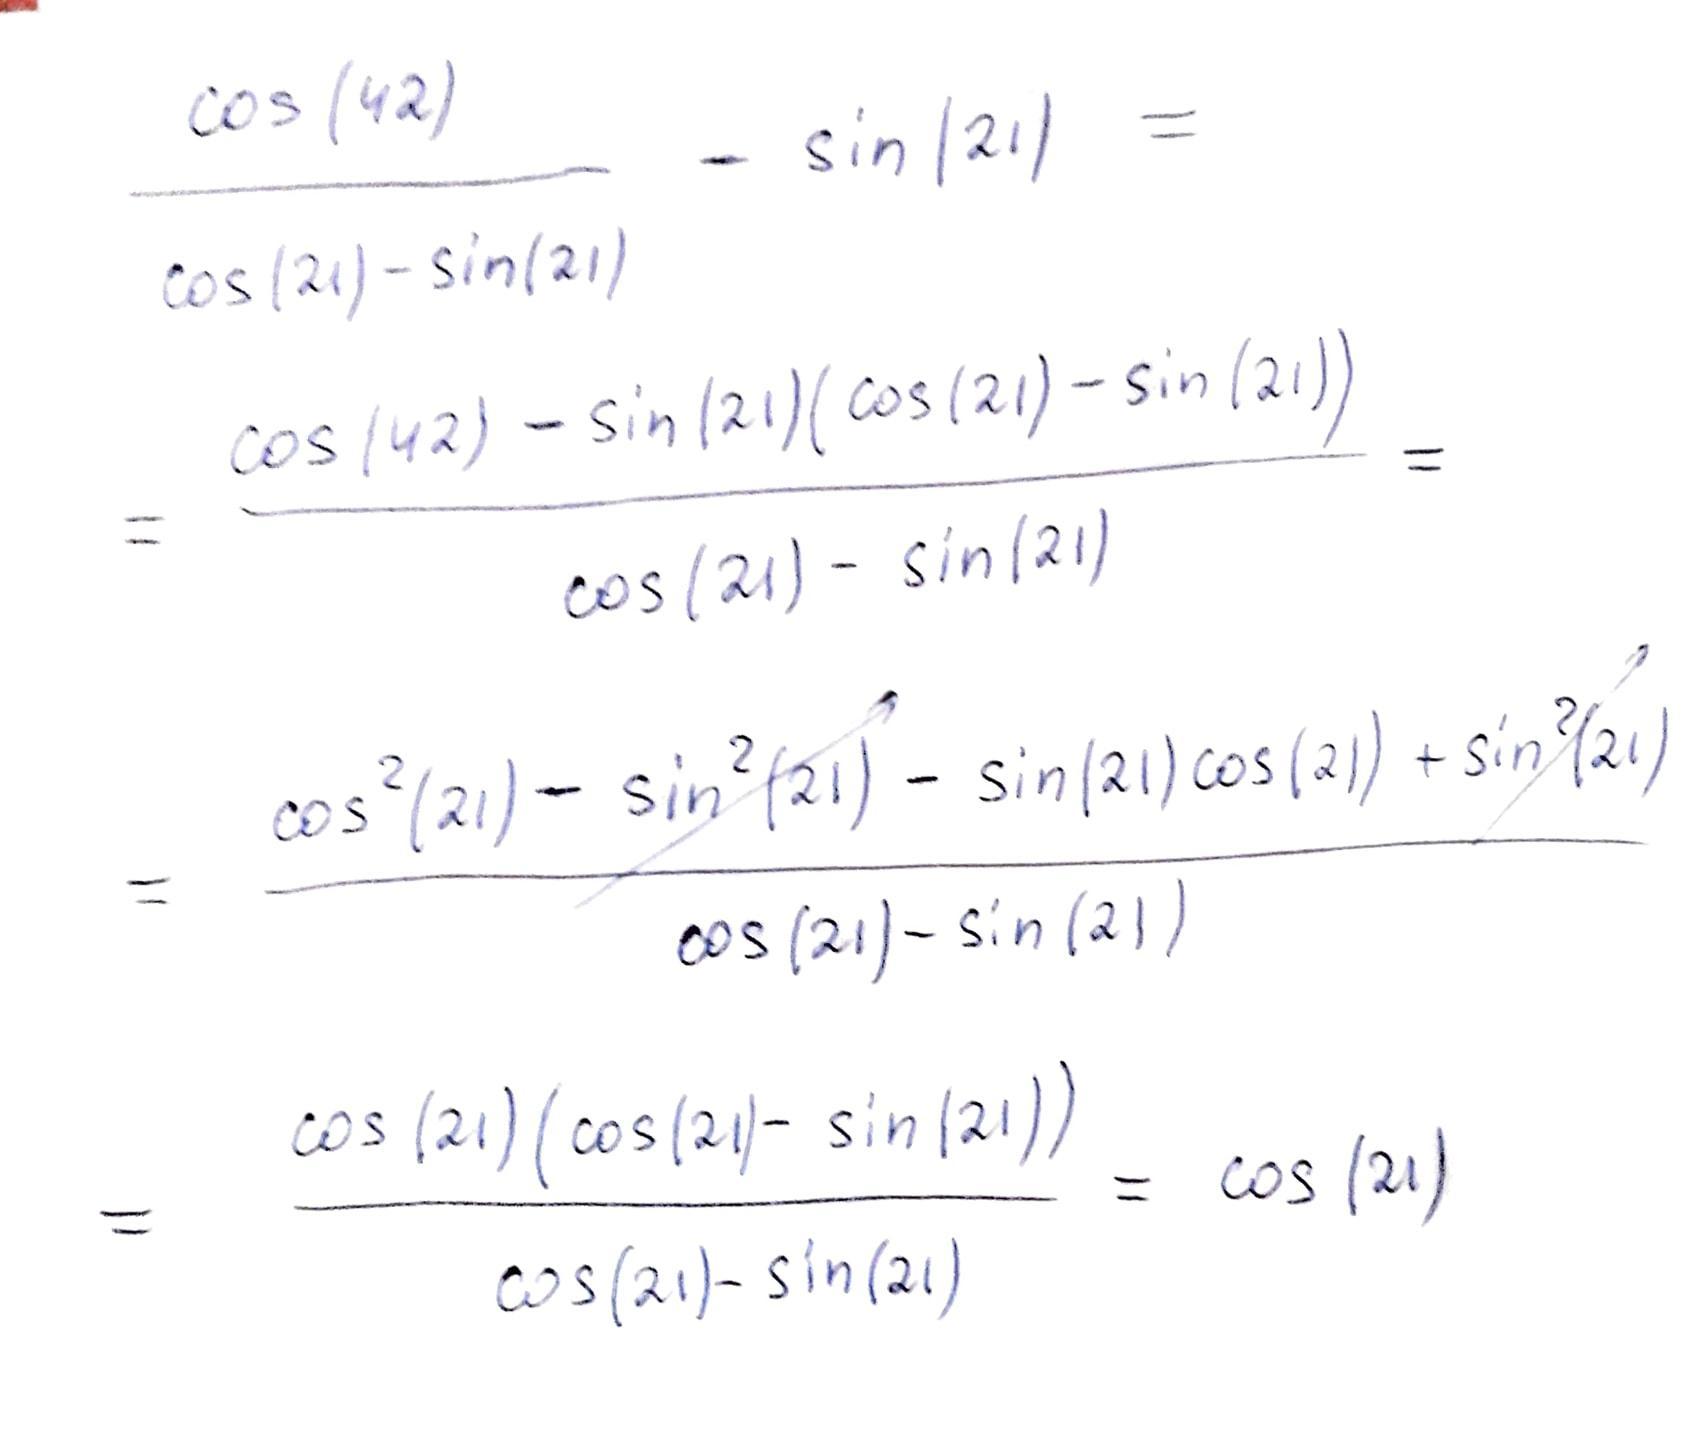 cos(42)
- sin(21) =
cos(21)-sin(21)
cos(42) - sin(21)(cos(21)-sin(21))
= =
cos(21)- sin(21)
cos²(21)- sin²(21) - sin(21)cos(21)+sin²(21)
=
cos(21)-sin(21)
cos(21)(cos(21)- sin(21))
= = cos(21)
cos(21)-sin(21)